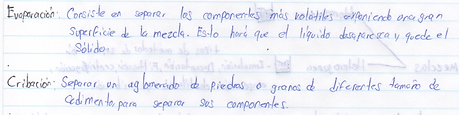 Evaporación: Consiste en separar los componentes más volátiles exponiendo una gran
superficie de la mezcla. Esto hará que el líquido desaparezca y quede el
Sólido.
Cribación: Separar un aglomerado de piedras o granos de diferentes tamaño de
cedimento, para separar sus componentes.